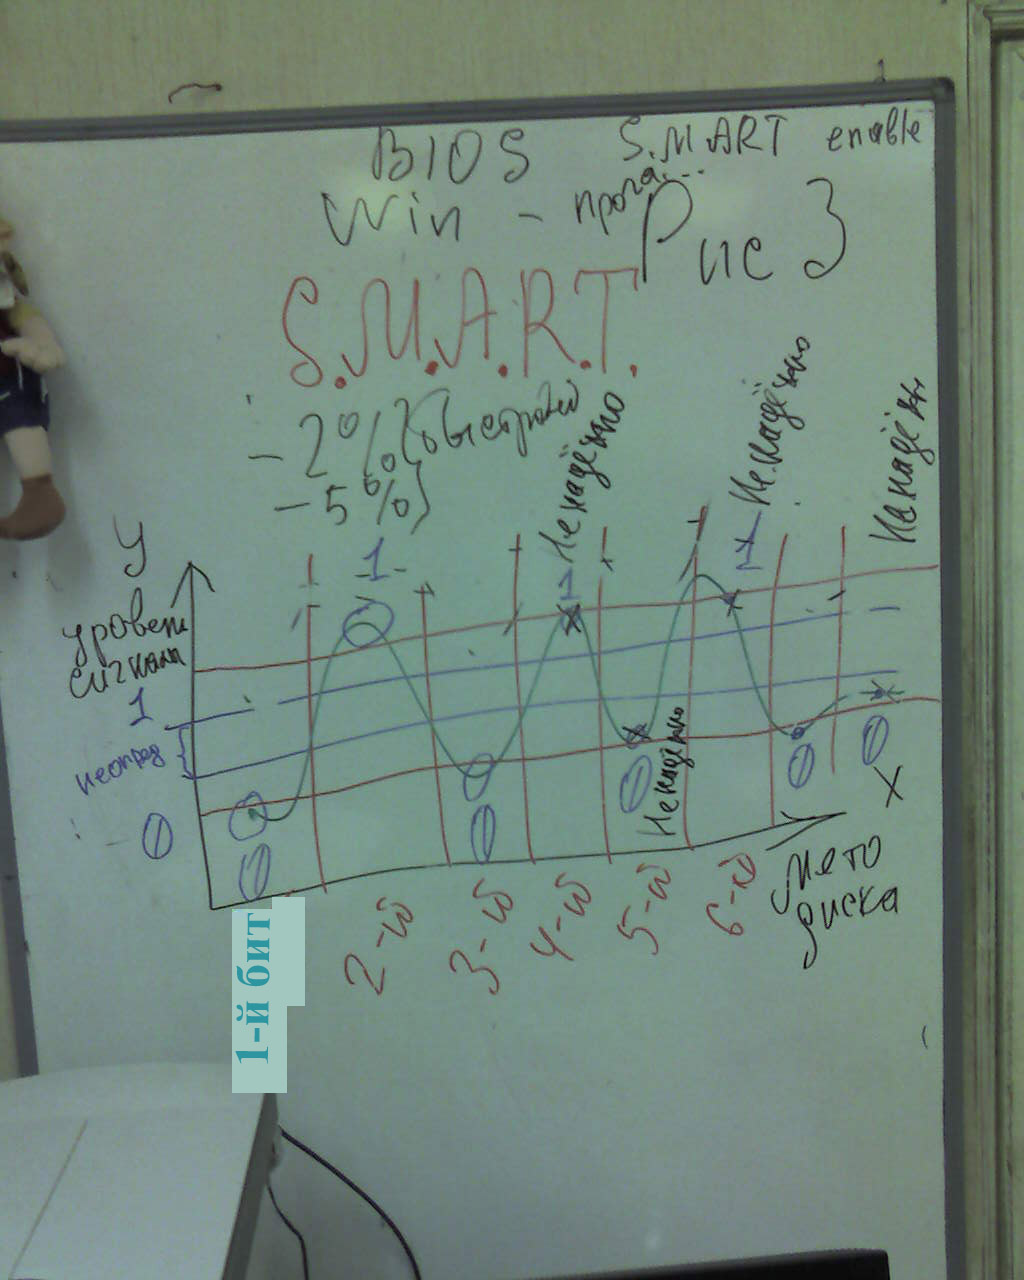 BIOS S.M.ART enable
Win - прога...
Рис 3
S.M.A.R.T.
- 2%
- 5%
Ненадёжно
Ненадёжно
Ненадёжн
У
уровень
сигнала
1
1
1
1
неопред
0
0
0
0
0
0
Ненадёжно
Х
место
диска
1-й бит
2-й
3-й
4-й
5-й
6-й